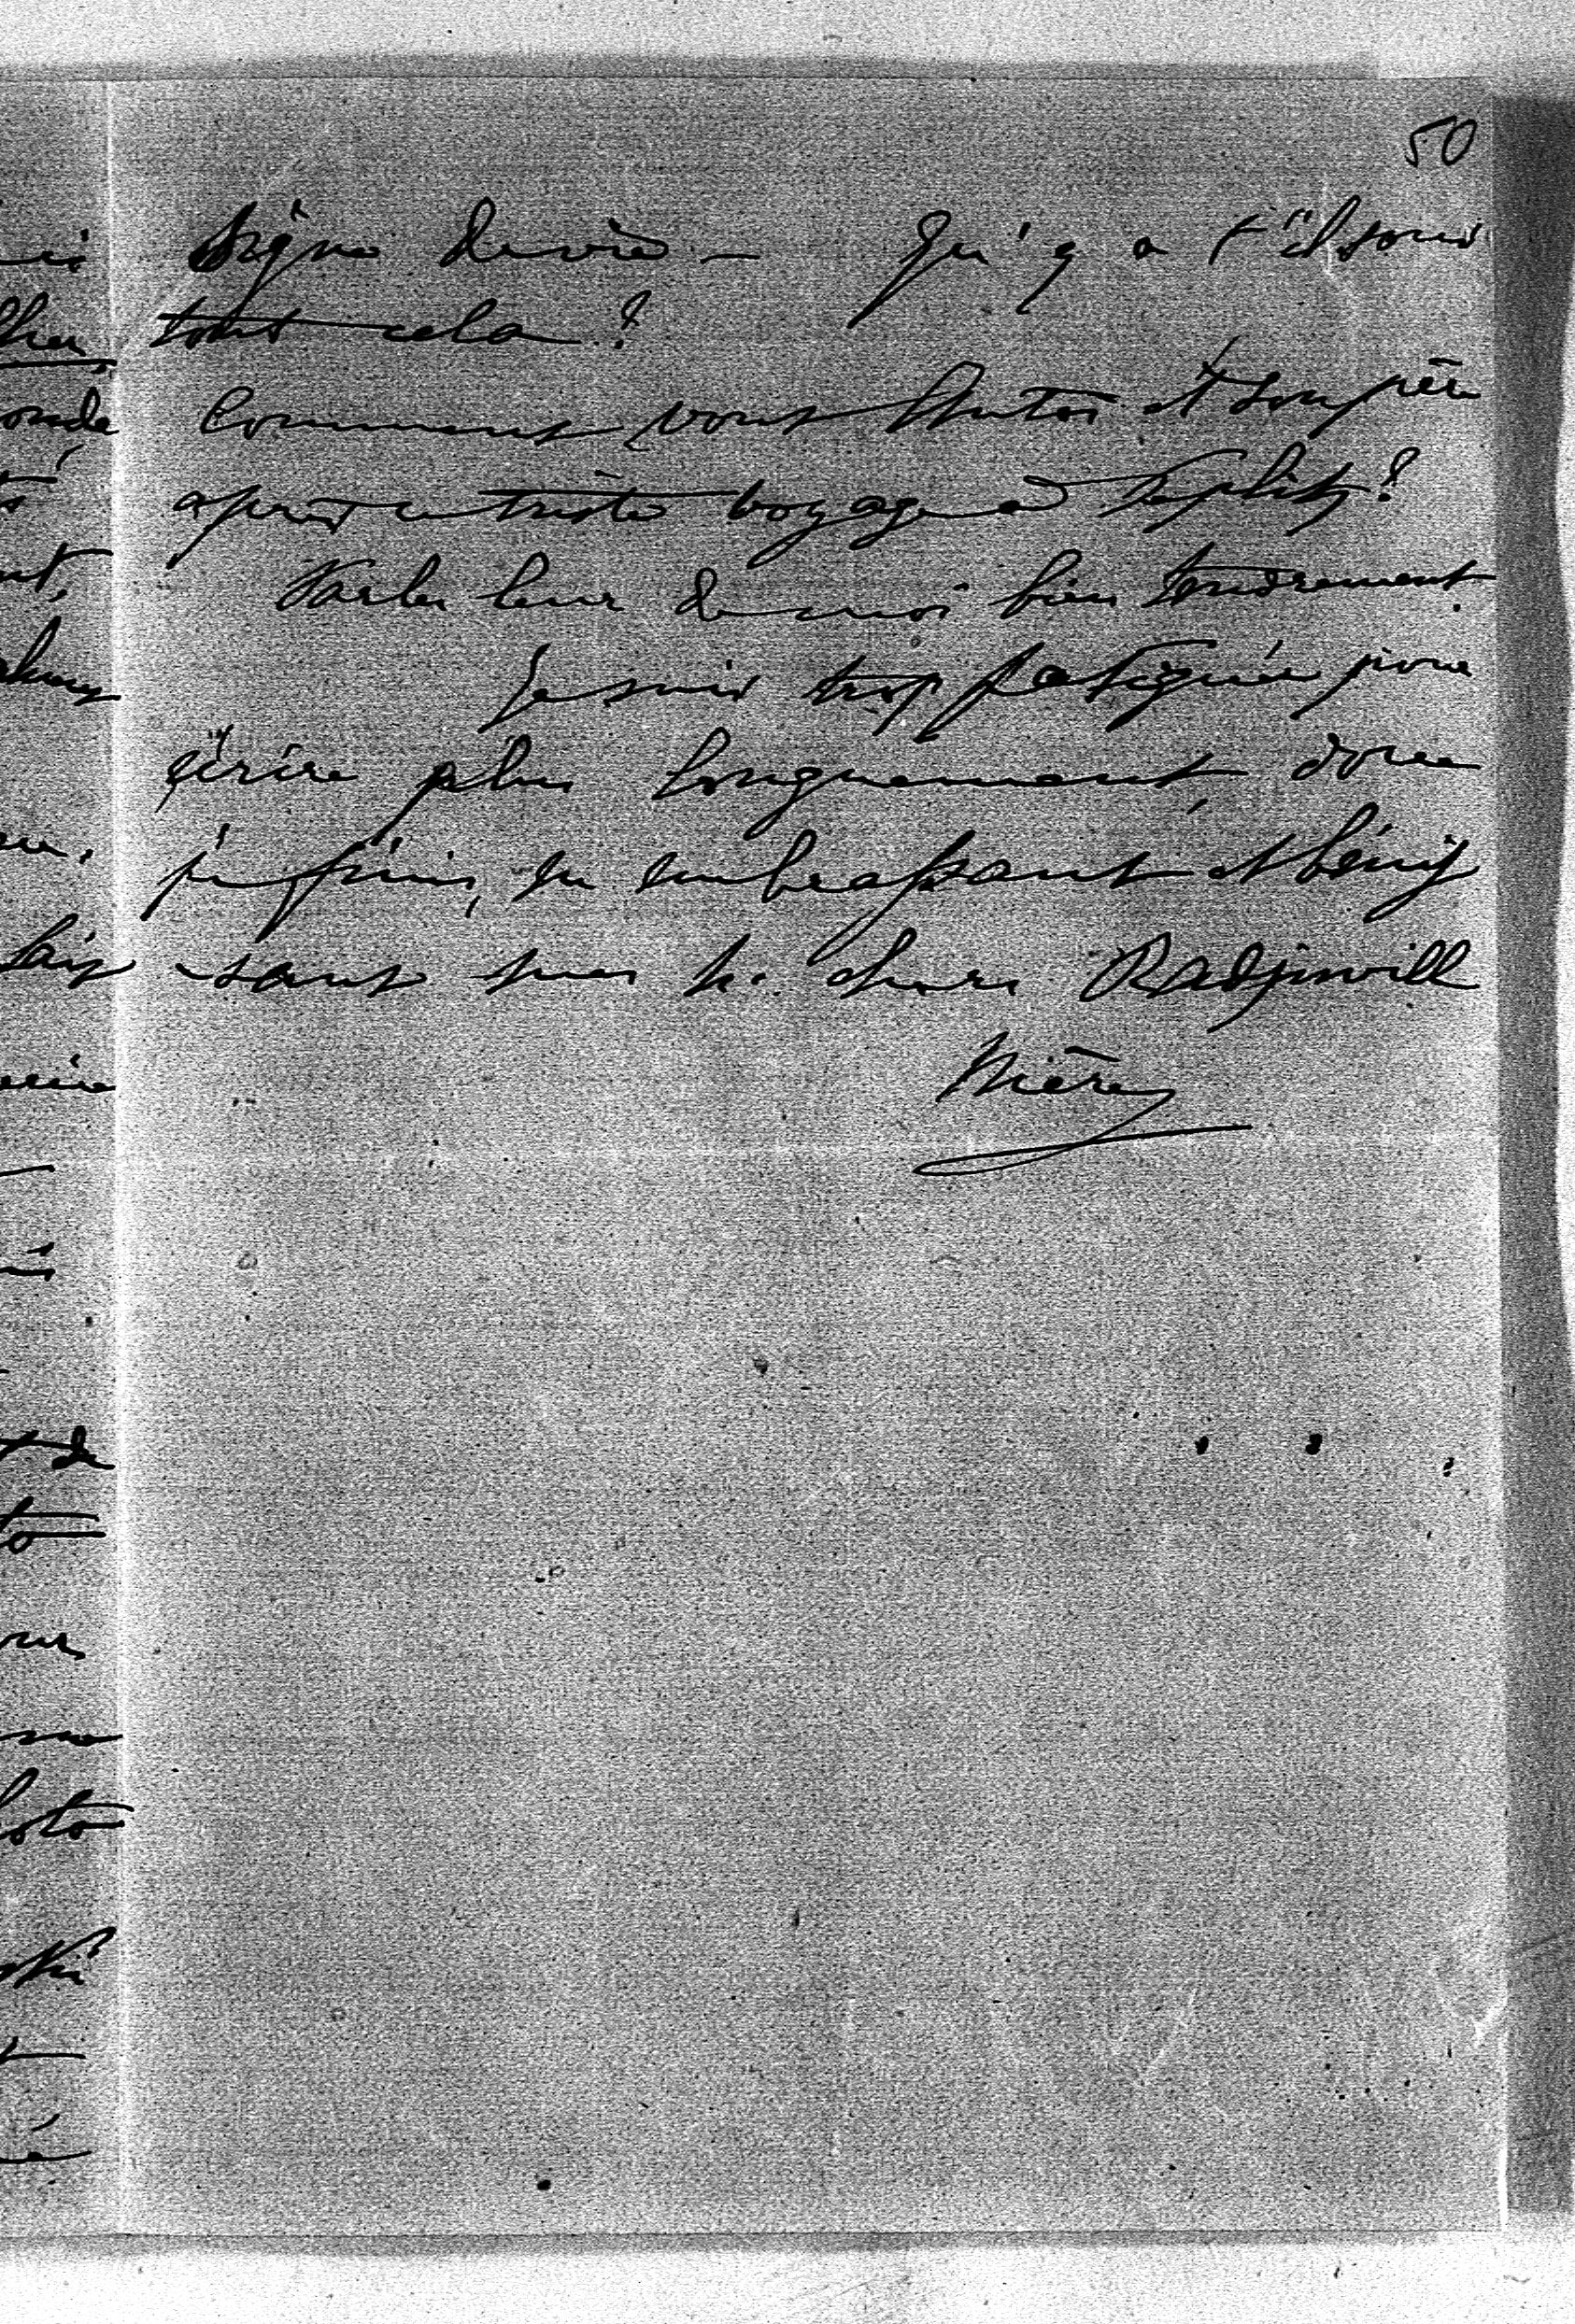 50
signe de vie — Qu'y a t'il sous
tout cela?
Comment vont et son père
après ce triste voyage à Teplitz?
Parlez leur de moi bien tendrement.
Je suis trop fatiguée pour
écrire plus longuement, donc
je finis, en embrassant et béniss
sant mes chers Radziwill
Mère